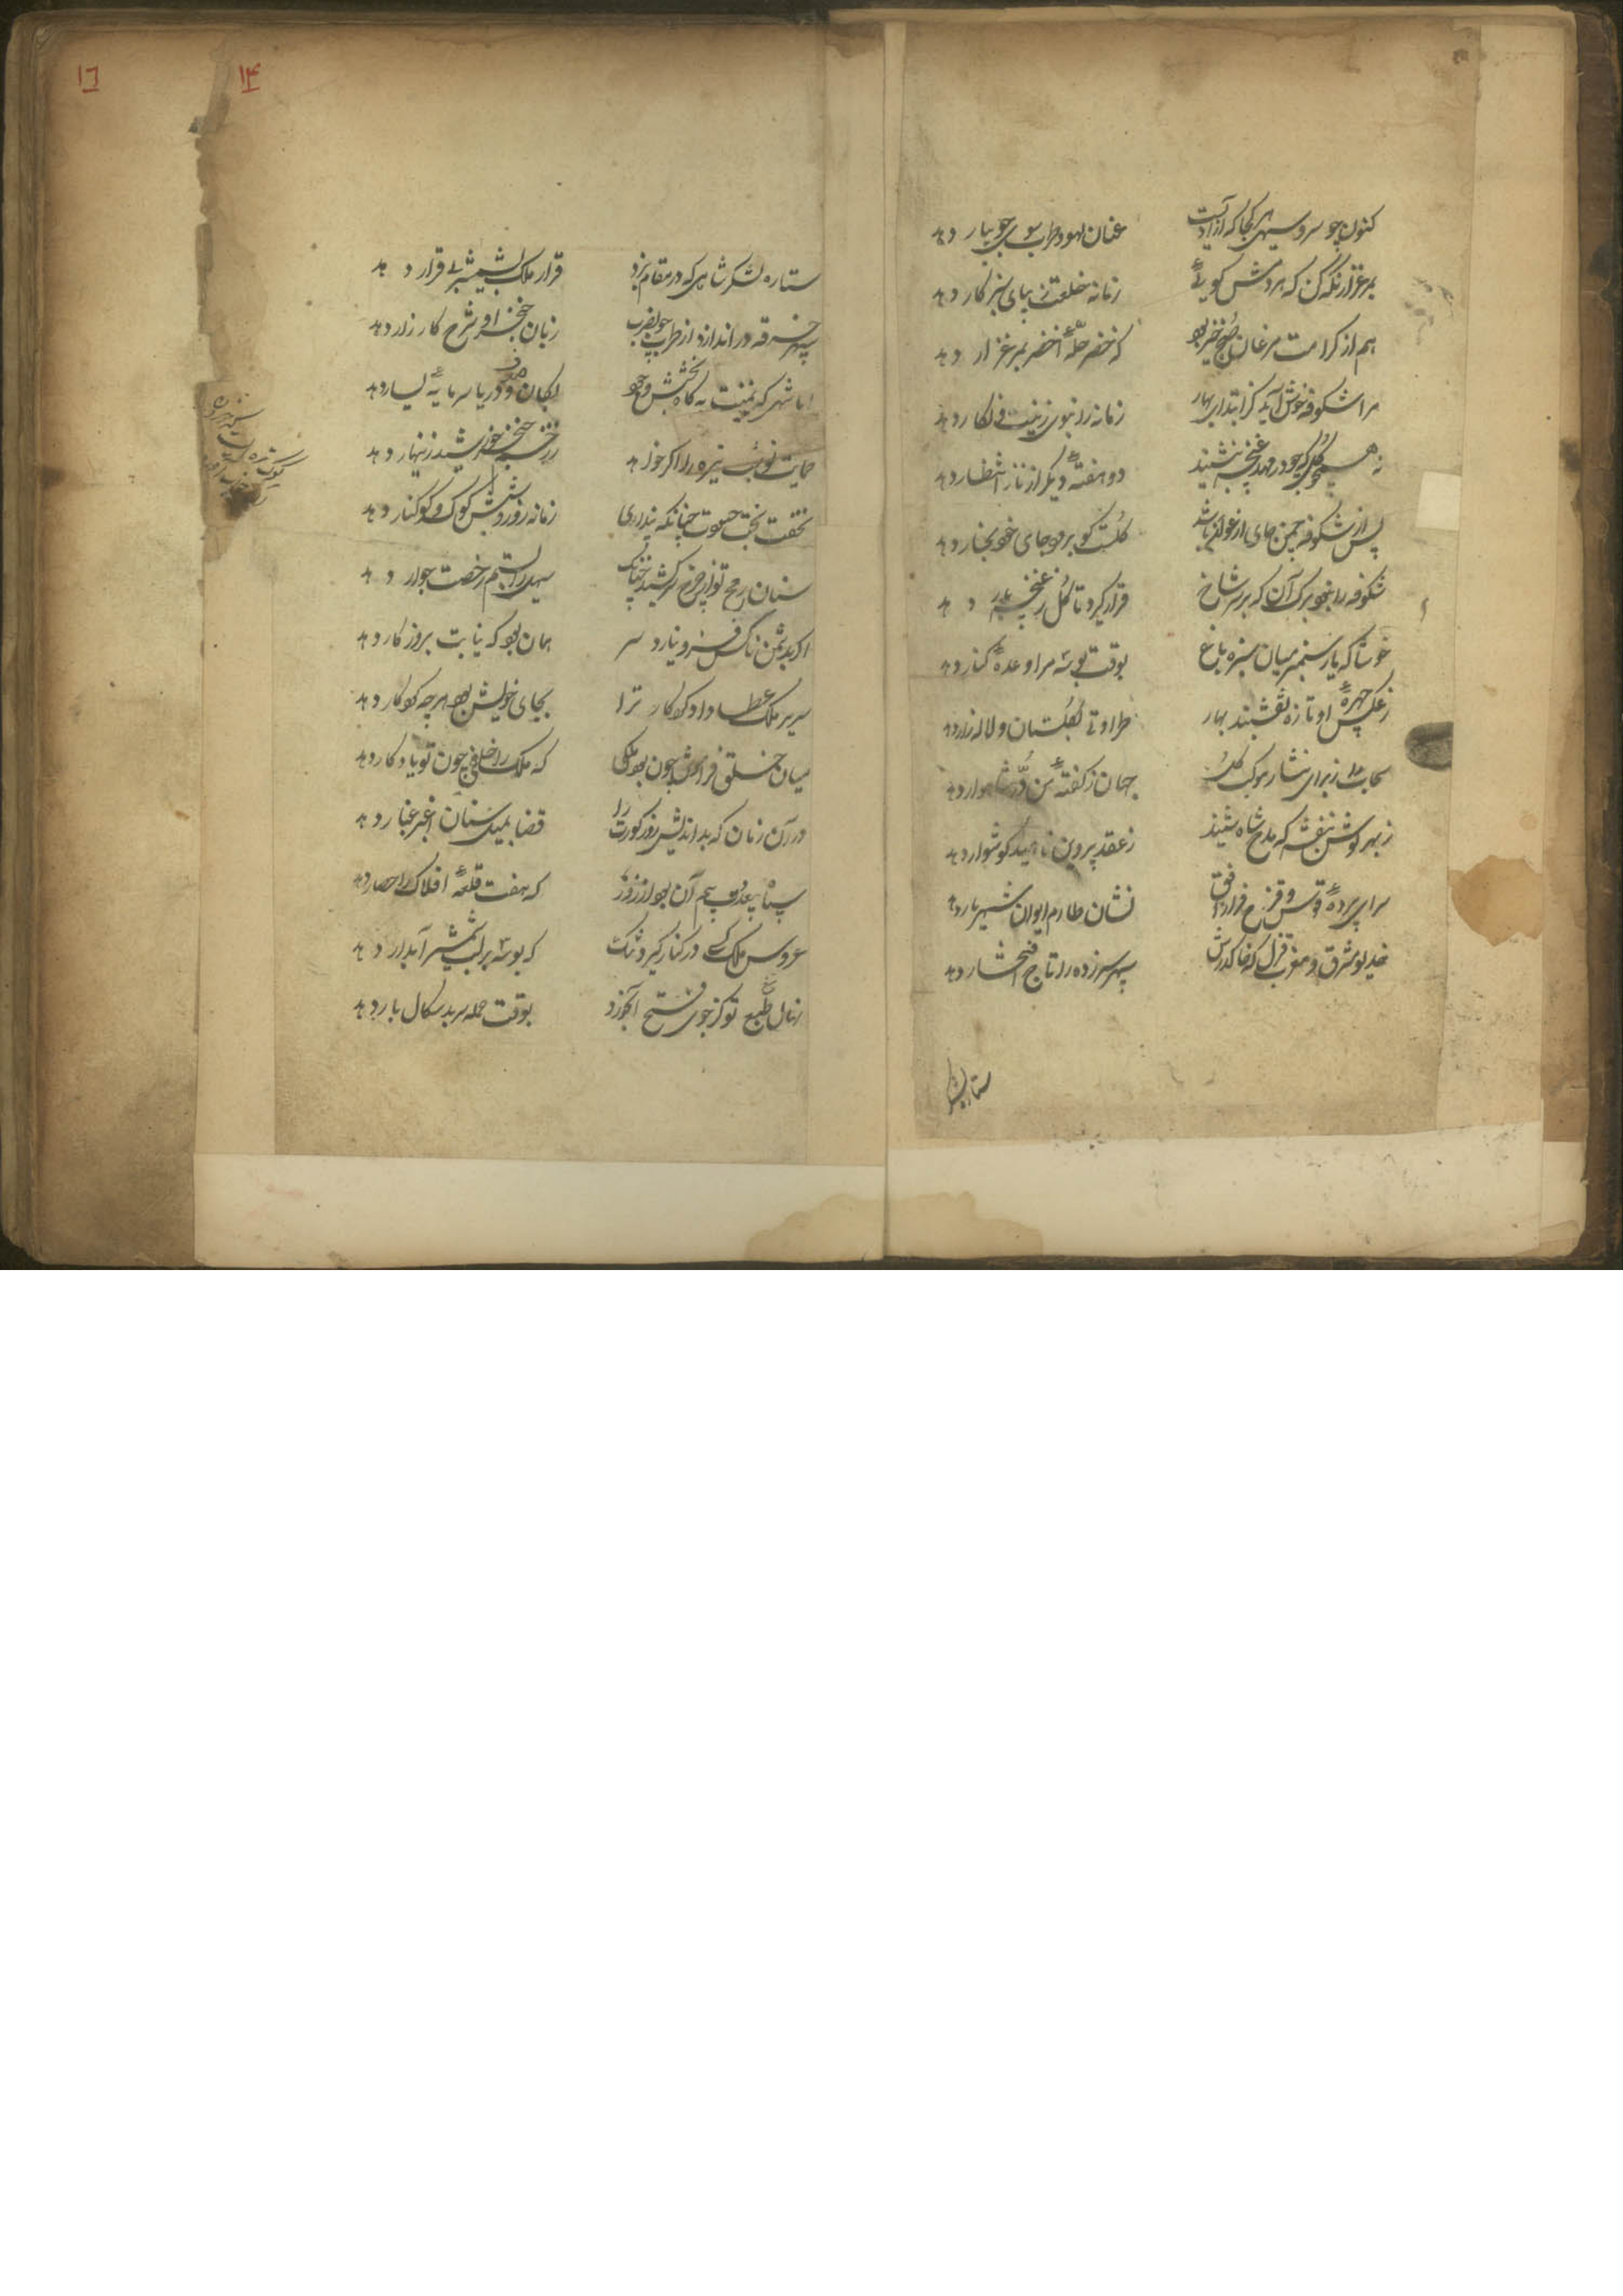 کنون چو سرو سهی هر کجا که آزادیست عنان لهو و طرب سوی جویبار دهد
بمرغزار نگه کن که هر دمش گویی زمانه خلعت زیبای سبز کار دهد
هم از کرامت مرغان صبح خیز بود که خضر حلهٔ اخضر بمرغزار دهد
مرا شکوفه خوش آید کز ابتدای بهار زمانه را بنوی زینت و نگار دهد
نه همچو گل که چو در مهد غنچه بنشیند دو هفتهٔ دیگر از ناز انتظار دهد
پس از شکوفه چمن جای ارغوان باشد گلست کو برود جای خود بخار دهد
شکوفه را نبود برگ آن که بر سر شاخ قرار گیرد تا گل ز غنچه بار دهد
خوشا که یار سمنبر میان سبزه باغ بوقت بوسه مرا وعدهٔ کنار دهد
ز عکس چهرهٔ او تازه نقشبند بهار طراوتی بگلستان و لاله زار دهد
سحاب را ز برای نثار موکب گل جهان ز گفتهٔ من در شاهوار دهد
ز بهر گوش بنفشه که مدح شاه شنید ز عقد پروین ناهید گوشوار دهد
سراپردهٔ قوس و قزح فراز افق نشان طارم ایوان شهریار دهد
خدیو مشرق و مغرب قزل که خاک درش سپهر سرزده را تاج افتخار دهد
ستاره لشکر
۱۴
۱۶
ستاره لشکر شاهی که در مقام نبرد قرار ملک بشمشیر بی قرار دهد
سپهر خرقه در اندازد از طرب چو بضرب زبان خنجر او شرح کارزار دهد
ایا شهی که یمینت به گاه بخشش و جود بکان و دریا سرمایهٔ یسار دهد
حمایت تو شب تیره را اگر خواهد ز زخم خنجر خورشید زینهار دهد
نخفت بخت حسودت چنانکه پنداری زمانه روز و شبش کوک و کوکنار دهد
سنان رمح تو از چرخ سرکشید چنانک
اگر بدشمن ناکس فرو نیارد سر همان بود که نیابت بروزگار دهد
سریر ملک عطا داد کردگار ترا بجای خویش بود هر چه کردگار دهد
میان خلق فراموش چون بود ملکی که ملک را خلفی چون تو یادگار دهد
در آن زمان که بداندیش روز کورت را قضا بمیل سنان اغبر غبار دهد
که هفت قلعهٔ افلاک را حصار دهد
عروس ملک کسی در کنار گیرد تنگ که بوسه بر لب شمشیر آبدار دهد
نهال طبع تو کز جوی فتح آب خورد بوقت حمله سر بدسگال بار دهد